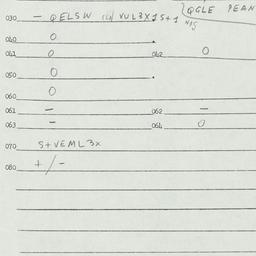 QGLE PEAN
030 - QELSW VUL3X1S+1 N15
040 0
041 0 042 0
050 0
060 0
061 - 062 -
063 - 064 0
070 S+VEML3X
080 +/-